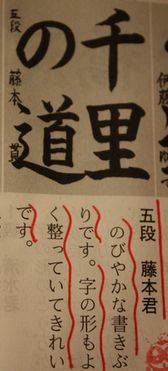 千里
の道
五段 藤本
五段 藤本君
のびやかな書きぶ
りです。字の形もよ
く整っていてきれい
です。